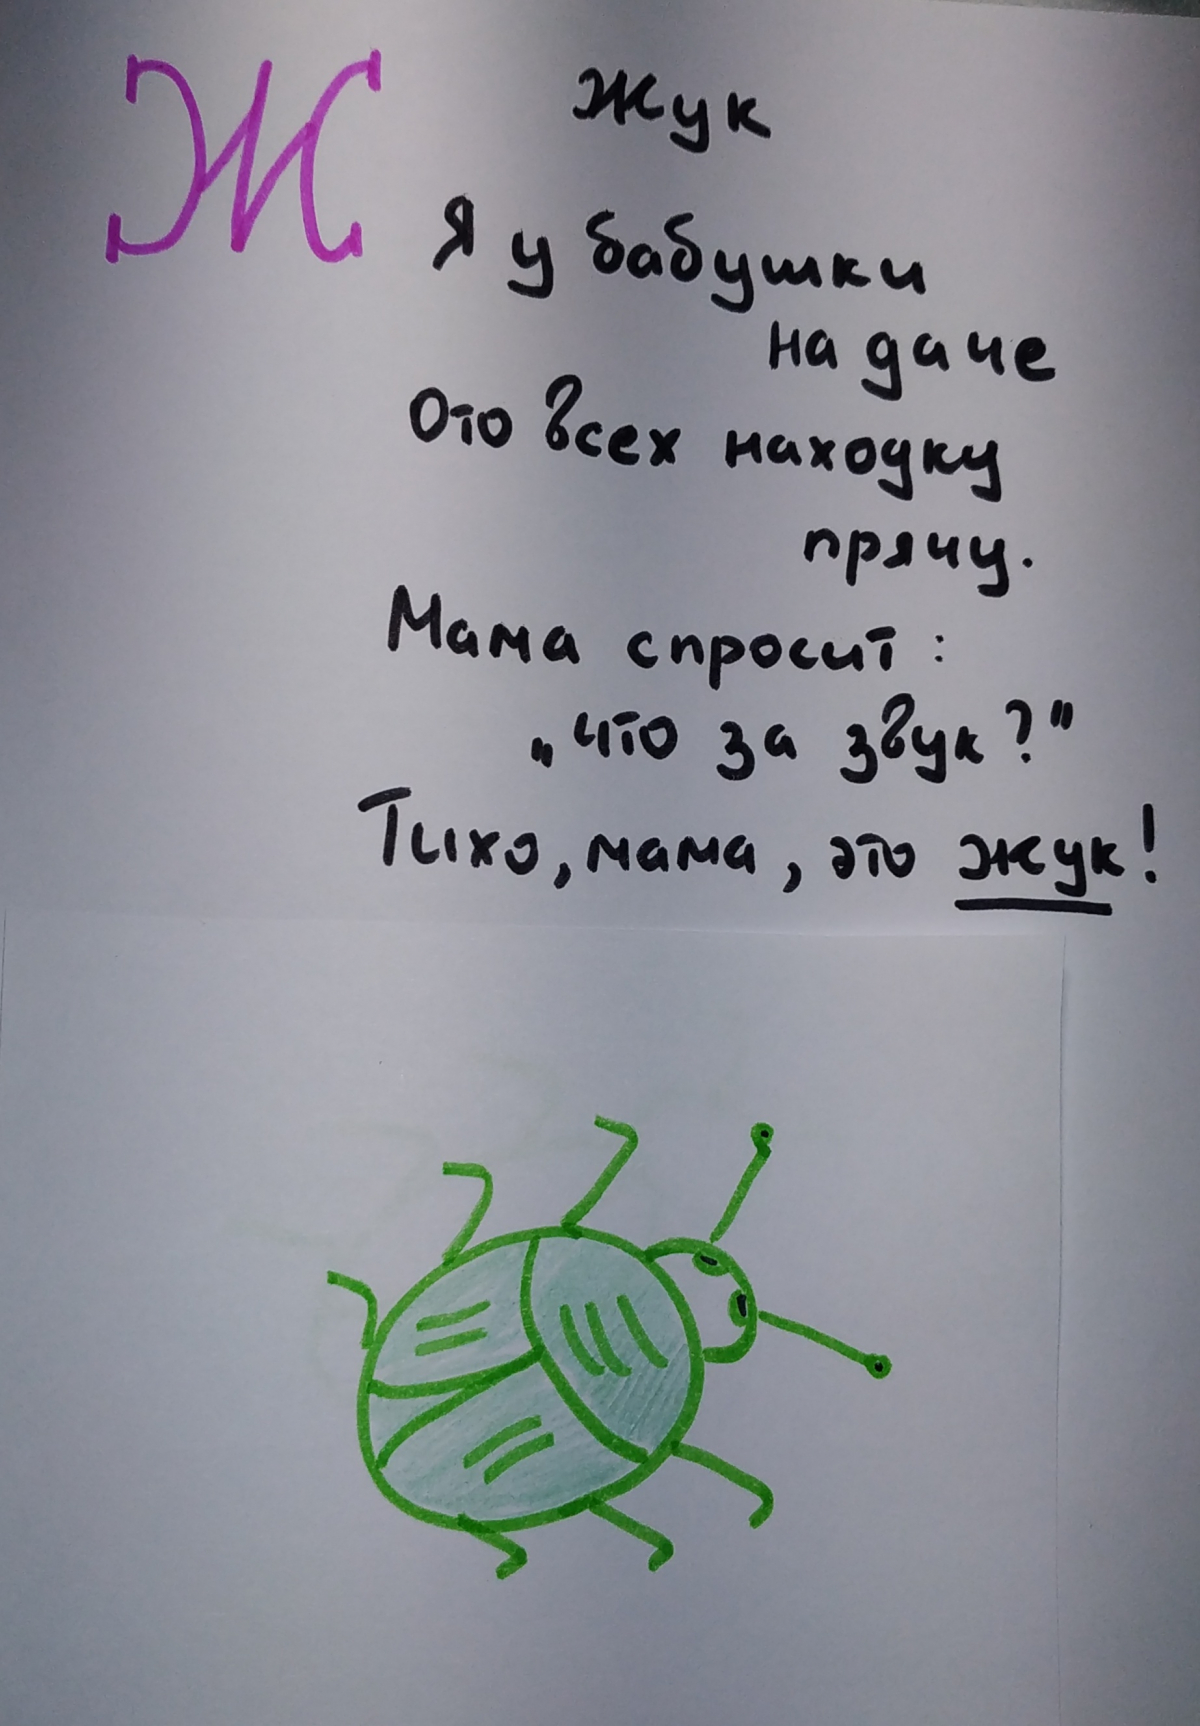 Ж
Жук
Я у бабушки
на даче
Ото всех находку
прячу.
Мама спросит:
„что за звук?"
Тихо, мама, это жук!